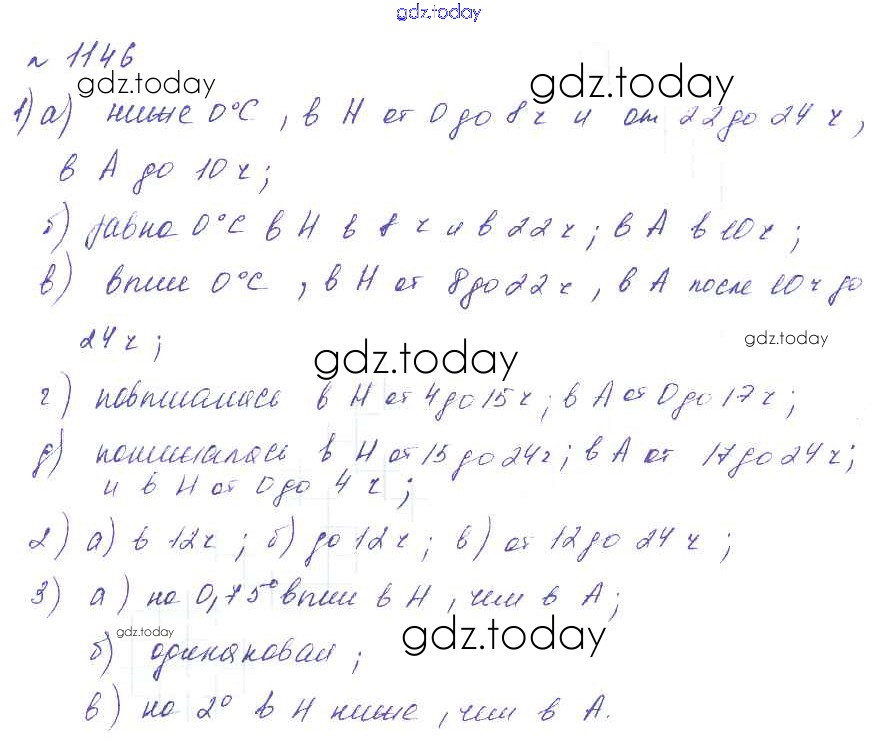 gdz.today
№ 1146
gdz.today
gdz.today
1) а) ниже 0°С, в Н от 0 до 8 ч и от 22 до 24 ч,
в А до 10 ч;
б) равна 0°С в Н в 8 ч и в 22 ч; в А в 10 ч;
в) выше 0°С, в Н от 8 до 22 ч, в А после 10 ч до
24 ч;
gdz.today
gdz.today
г) повышалась в Н от 4 до 15 ч; в А от 0 до 17 ч;
д) понижалась в Н от 15 до 24 ч; в А от 17 до 24 ч;
и в Н от 0 до 4 ч;
2) а) в 12 ч; б) до 12 ч; в) от 12 до 24 ч;
3) а) на 0,75° выше в Н, чем в А;
gdz.today
gdz.today
б) одинаковая;
в) на 2° в Н ниже, чем в А.